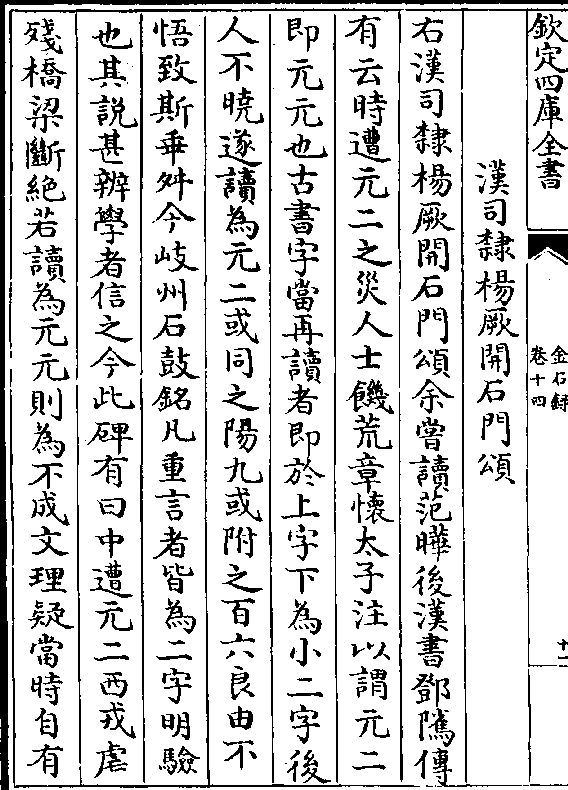 欽定四庫全書
金石録
卷十四
十一
漢司隸楊厥開石門頌
右漢司隸楊厥開石門頌余嘗讀范曄後漢書鄧隲傳
有云時遭元二之災人士饑荒章懷太子注以謂元二
即元元也古書字當再讀者即於上字下為小二字後
人不曉遂讀為元二或同之陽九或附之百六良由不
悟致斯乖舛今岐州石鼓銘凡重言者皆為二字明驗
也其說甚辨學者信之今此碑有曰中遭元二西戎虐
殘橋梁斷絶若讀為元元則為不成文理疑當時自有